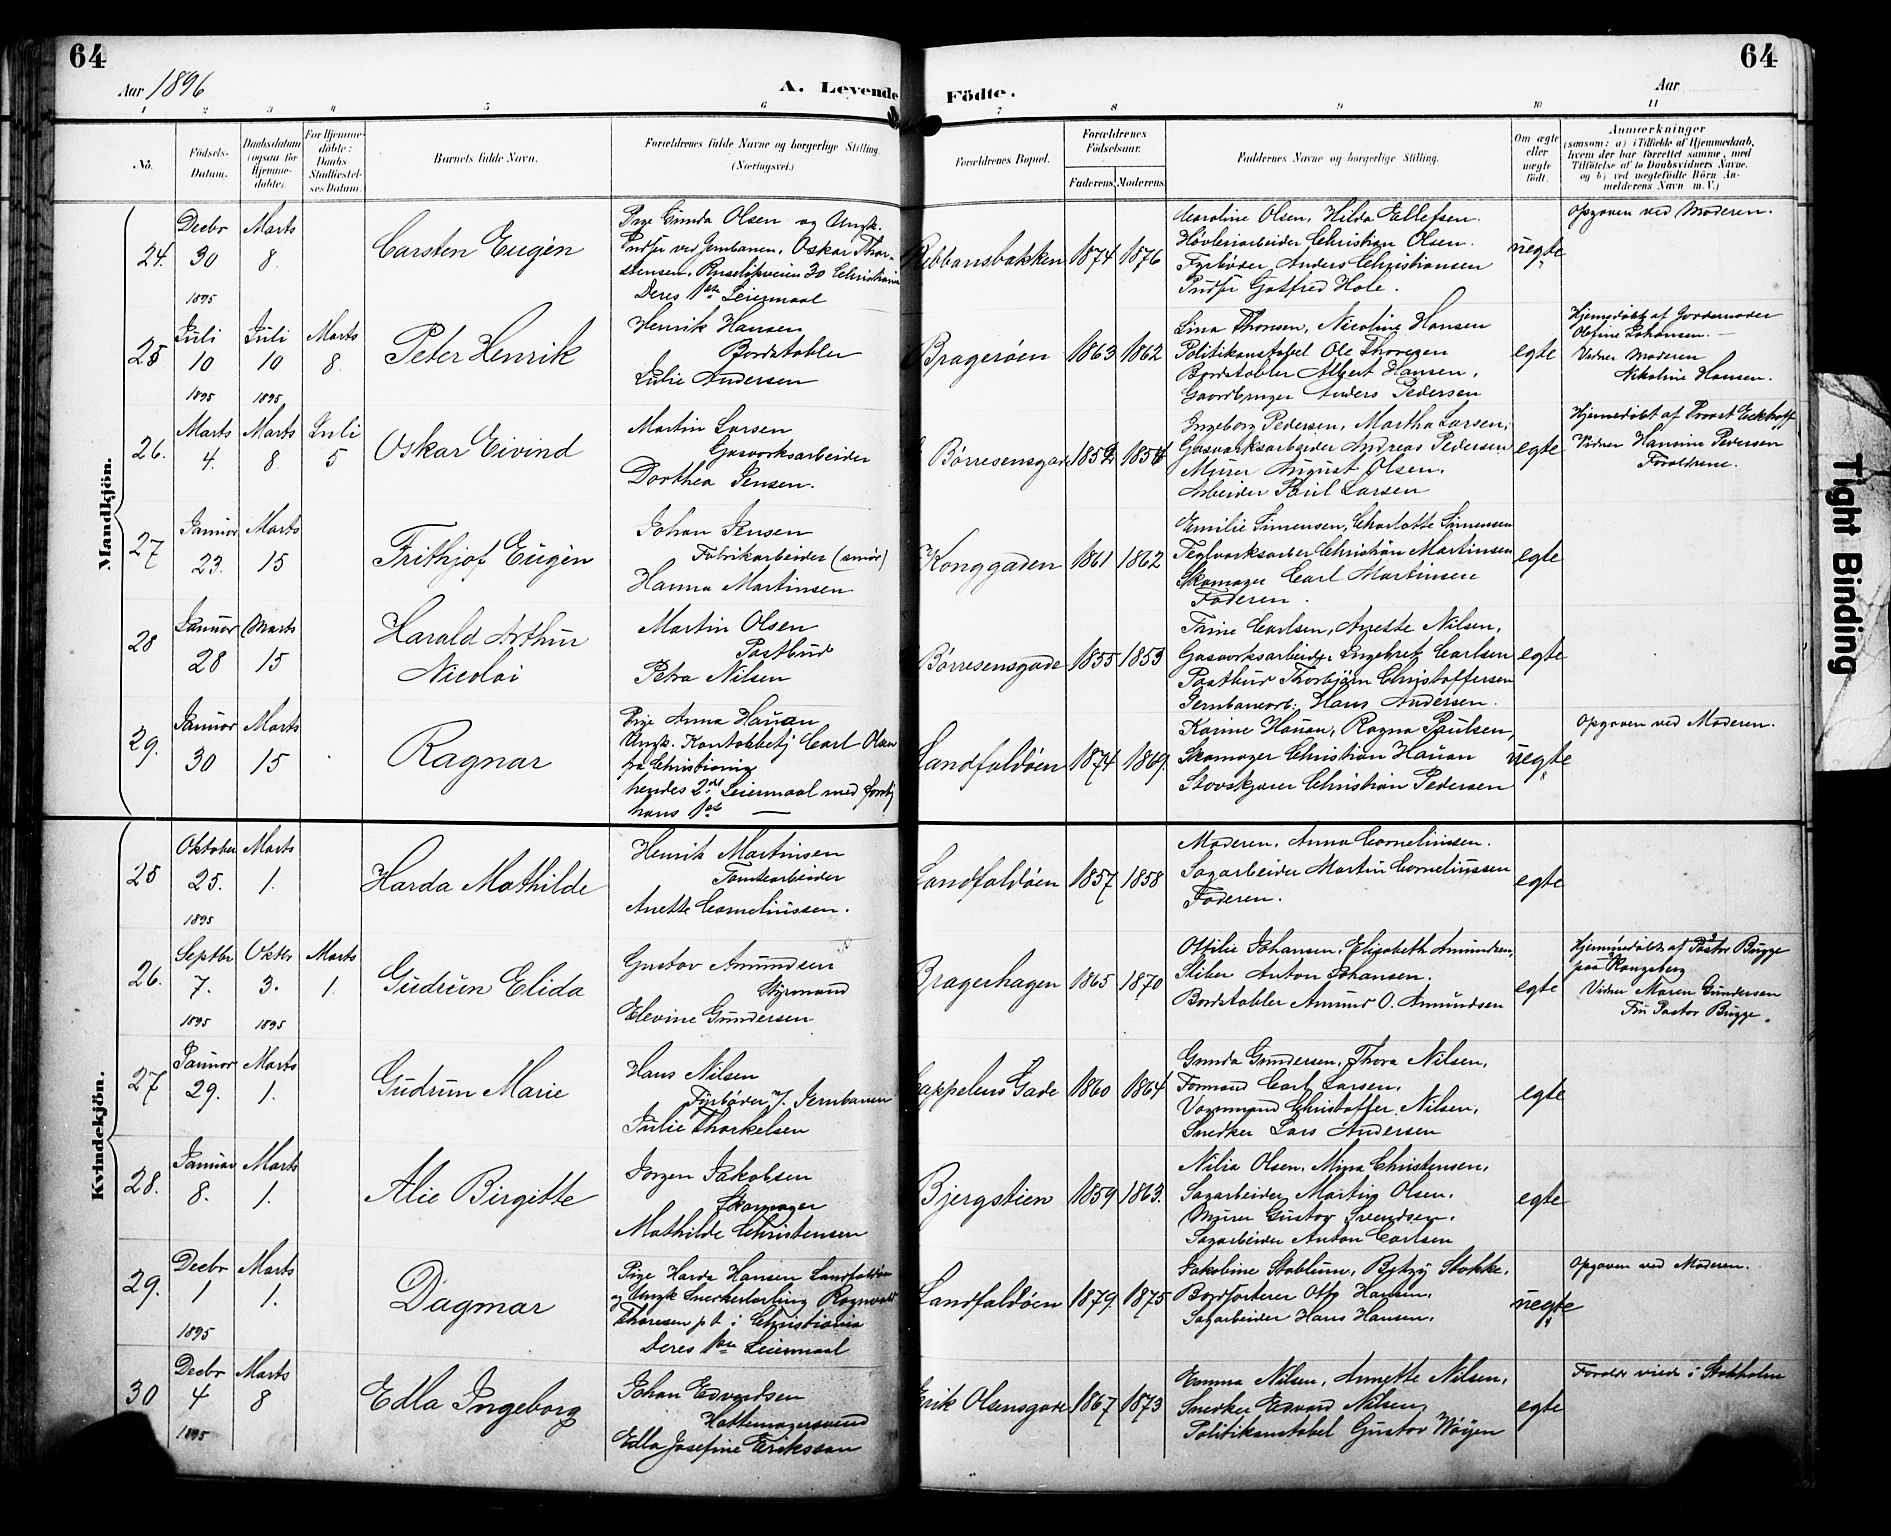 64
64
Aar 1896
A. Levende
Födte.
Aar
1 2 3 4 5 6 7 8 9 10 11
No.
Födsels-
Datum.
Daabsdatum
(ogsaa for
Hjemme-
döbte).
For Hjemme-
döbte:
Daabs-
Stadfæstel-
ses Datum.
Barnets fulde Navn.
Forældrenes fulde Navne og borgerlige Stilling.
(Næringsvei.)
Forældrenes Bopæl.
Forældrenes
Födselsaar.
Faderens. Moderens.
Faddernes Navne og borgerlige Stilling.
Om ægte
eller
uægte
født.
Anmærkninger
(saasom: a) i Tilfælde af Hjemmedaab,
hvem der har forrettet samme, med
Tilföielse af to Daabsvidners Navne.
og b) ved uægtefödte Börn An-
melderens Navn m. V.)
Mandkjön.
24. Decbr 30 1895 Marts 8.
Carsten Eugen
Pige Gunda Olsen og Ungk.
Pudser ved Jernbanen, Oskar Thor-
stensen, 30 Christiania
Deres 1ste Leiermaal
Ribbansbakken 1874 1876
Caroline Olsen, Hilda Ellefsen.
Høvleriarbeider Christian Olsen.
Fyrbøder Anders Christiansen
Pudser Gotfred Hole.
uegte
Opgaven ved Moderen.
25 Juli 10 1895 Juli 10 1895 Marts 8.
Peter Henrik
Henrik Hansen
Bordstabler
Julie Andersen
Bragerøen 1863 1862
Lina Thonsen, Nicoline Hansen
Politikonstabel Ole Thoresen
Bordstabler Albert Hansen,
Gaardbruger Anders Pedersen
egte
Hjemmedøbt af Jordemoder
Olefine Johansen.—
Vidner Moderen
Nikoline Hansen.
26. Marts 4. Marts 8. Juli 5
Oskar Eivind
Martin Larsen
Gasværksarbeider
Dorthea Jensen.
Børresensgade
Ingeborg Pedersen, Martha Larsen,
Gasværksarbeider Andreas Pedersen
Murer August Olsen.
Arbeider Paul Larsen
egte
Hjemmedøbt af Provst Eckhoff
Vidner Hansine Pedersen
Forældrene.
27 Januar 23. Marts 15
Frithjof Eugen
Johan Jensen
Fabrikarbeider (smør)
Hanna Martinsen
Konggaden 1861 1862
Emilie Simensen, Charlotte Simensen
Teglværksarbeider Christian Martinsen
Skomager Carl Martinsen
Faderen.
egte
28 Januar 28 Marts 15
Harald Arthur
Nicolai
Martin Olsen
Postbud
Petra Nilsen
Børresensgade 1855 1853
Trine Carlsen, Anette Nilsen,
Gasværksarbeider Ingebret Carlsen
Postbud Thorbjørn Christoffersen
Jernbanearb. Hans Andersen.
egte
29. Januar 30 Marts 15
Ragnar
Pige Anna Hauan
Ungk. Kontorbetj Carl Olsen
fra Christiania
hendes 2det Leiermaal med forskj
hans 1ste —
Landfaldøen 1874 1869.
Karine Hauan, Ragna Paulsen,
Skomager Christian Hauan
Stovskjærer Christian Pedersen
uegte
Opgaven ved Moderen.
Kvindekjön.
25 Oktober 25. 1895 Marts 1.
Harda Mathilde
Henrik Martinsen
Tomtearbeider
Anette Corneliussen.
Landfaldøen 1857 1858
Moderen, Anna Corneliussen.
Sagarbeider Martin Corneliussen
Faderen.
egte
26. Septbr 7. 1895 Oktbr 3. 1895 Marts 1.
Gudrun Elida
Gustav Amundsen
Styrmand
Elevine Gundersen
Bragerhagen 1865 1870
Ottilie Johansen, Elisabeth Amundsen,
Sliber Anton Johansen.
Bordstabler Amund O. Amundsen
egte
Hjemmedøbt af Pastor Bugge
paa Kongsberg
Vidner Maren Gundersen
Fru Pastor Bugge.
27 Januar 29. Marts 1.
Gudrun Marie
Hans Nilsen
Fyrbøder v/. Jernbanen
Julie Thorkelsen
Cappelens Gade 1860 1864
Gunda Gundersen, Thora Nilsen,
Formand Carl Larsen,
Vognmand Christoffer Nilsen,
Snedker Lars Andersen
egte
28. Januar 8. Marts 1.
Alie Birgitte
Jørgen Jakobsen
Skomager
Mathilde Christensen
Bjergstien 1859 1863.
Nilia Olsen, Mina Christensen,
Sagarbeider Martin Olsen,
Murer Gustav Svendsen,
Sagarbeider Anton Carlsen
egte
29. Decbr 1 1895 Marts 1.
Dagmar
Pige Harda Hansen Landfaldøen
og Ungk Snedkerlærling Ragnvald
Thoresen pt i Christiania
Deres 1ste Leiermaal
Landfaldøen 1879. 1875
Jakobine Stablum, Betzy Stokke,
Bordsorterer Otto Hansen,
Sagarbeider Hans Hansen,
uegte
Opgaven ved Moderen.
30 Decbr 4 1895 Marts 8
Edla Ingeborg
Johan Edvardsen
Hattemagersvend
Edla Josefine Eriksson
Erik Olsensgade 1867 1873
Emma Nilsen, Annette Nilsen,
Snedker Edvard Nilsen,
Politikonstabel Gustav Wøyen
egte
Foreldr viede i Stokholm
Tight Binding